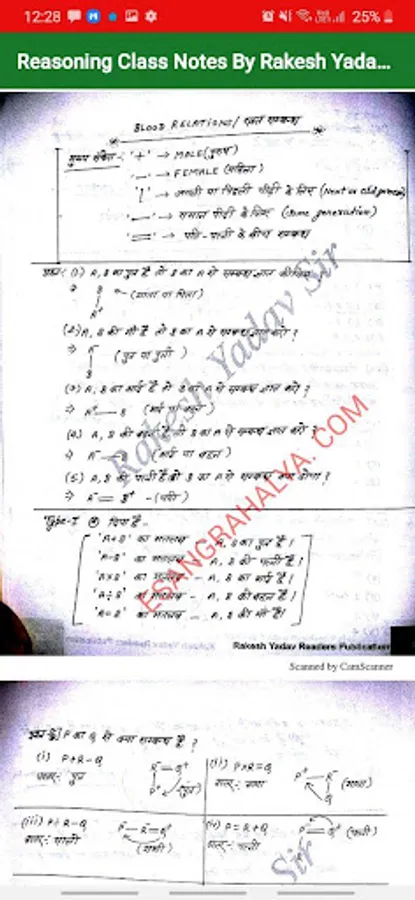 12:28
25%
Reasoning Class Notes By Rakesh Yada...
BLOOD RELATIONS/ रक्त सम्बन्ध
मुख्य संकेत :- '+' → MALE (पुरुष)
'—' → FEMALE (महिला)
'|' → अगली या पिछली पीढ़ी के लिए
'—' → समान पीढ़ी के लिए (Same generation)
'=' → पति-पत्नी के बीच सम्बन्ध
प्रश्न:- (1) A, B का पुत्र है तो B का A से सम्बन्ध ज्ञात कीजिए
⇒ B
(माता या पिता)
A+
(2) A, B की माँ है तो B का A से सम्बन्ध ज्ञात करो?
⇒ A- (पुत्र या पुत्री)
B
(3) A, B का भाई है तो B का A से सम्बन्ध ज्ञात करो?
⇒ A+ — B (भाई या बहन)
(4) A, B की बहन है तो B का A से सम्बन्ध ज्ञात करो?
⇒ A- — B (भाई या बहन)
(5) A, B की पत्नी है तो B का A से सम्बन्ध क्या होगा?
⇒ A- = B+ - (पति)
Type-I दिया है -
'A+B' का मतलब - A, B का पुत्र है।
'A-B' का मतलब - A, B की पत्नी है।
'A×B' का मतलब - A, B का भाई है।
'A÷B' का मतलब - A, B की बहन है।
'A=B' का मतलब - A, B की माँ है।
Rakesh Yadav Sir
ESANGRAHALYA.COM
Rakesh Yadav Readers Publication
Scanned by CamScanner
P का Q से क्या सम्बन्ध है?
(i) P+R-Q R- = Q+ (ii) P×R=Q P+ — R-
P+ (पुत्र) Q (मामा)
(iii) P÷R-Q P- — R- = Q+ (iv) P=R+Q P- = Q+ (पत्नी)
(साली)
Sir